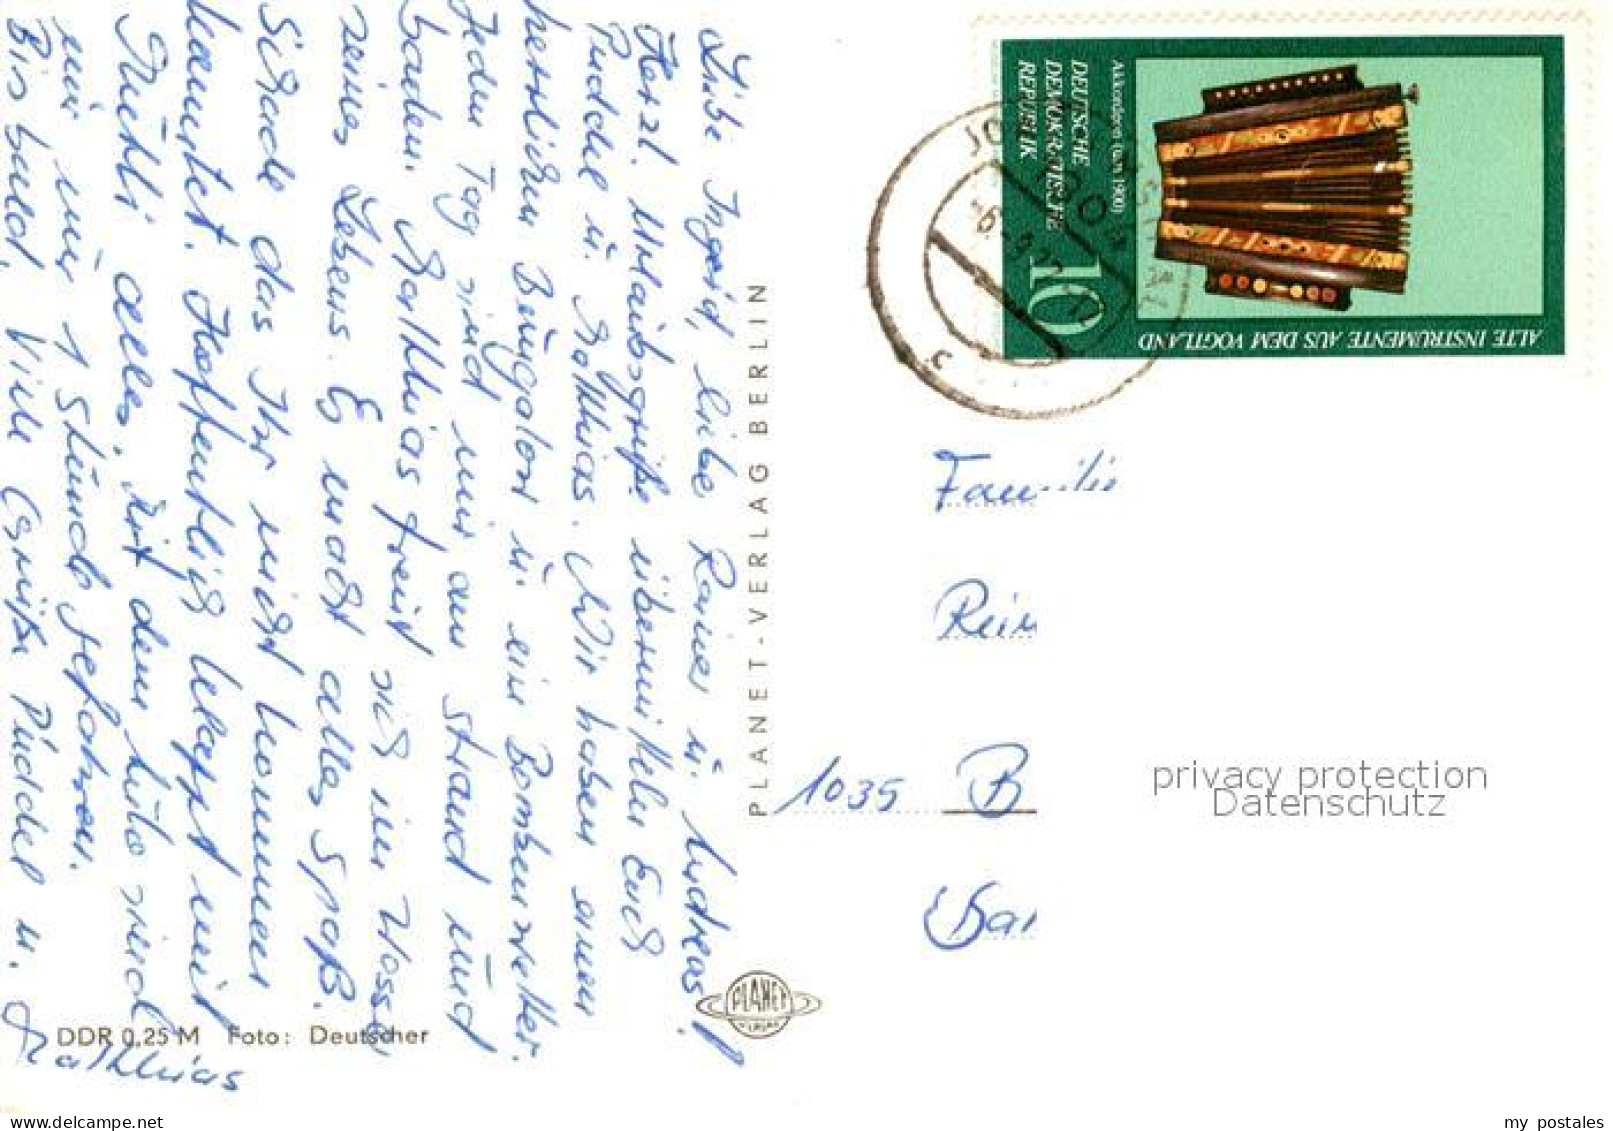 Liebe Ingrid, liebe Rainer u. Andreas!
Herzl. Urlaubsgrüße übermitteln Euch
Puddel u. Matthias. Wir haben einen
herrlichen Bungalow u. ein Bombenwetter.
Jeden Tag sind wir am Strand und
baden. Matthias freut sich im Wasser
seines Lebens. Es macht alles Spaß.
Schade das Ihr nicht kommen
konntet. Hoffentlich klappt mit
Mutti alles. Mit dem Auto sind
wir nur 1 Stunde gefahren.
Bis bald. Viele Grüße Puddel u.
Matthias
DDR 0,25 M Foto: Deutscher
PLANET-VERLAG BERLIN
PLANET
VERLAG
ALTE INSTRUMENTE AUS DEM VOGTLAND
Akkordeon (um 1900)
DEUTSCHE
DEMOKRATISCHE
REPUBLIK
10
Familie
Rein
1035 B
privacy protection
Datenschutz
my postales